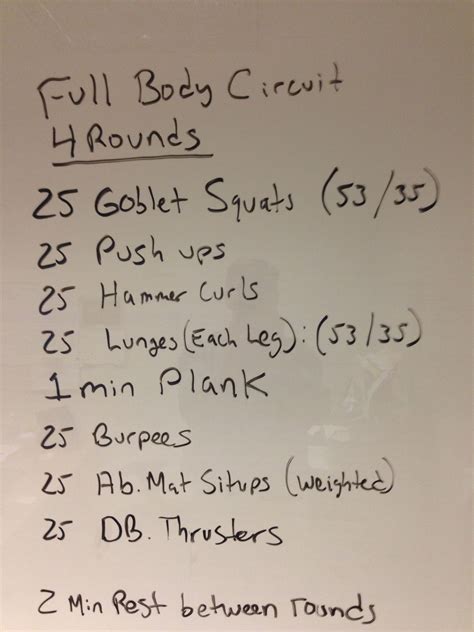 Full Body Circuit
4 Rounds
25 Goblet Squats (53/35)
25 Push ups
25 Hammer Curls
25 Lunges (Each Leg): (53/35)
1 min Plank
25 Burpees
25 Ab. Mat Situps (weighted)
25 DB. Thrusters
2 Min Rest between rounds